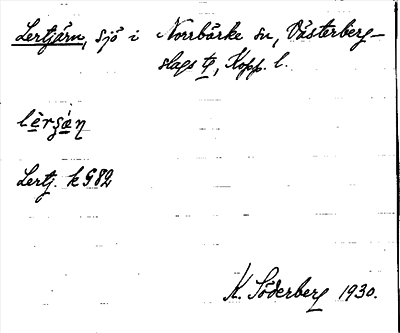 Lertjärn, sjö i Norrbärke sn, Västerberg-
slags tg, Kopp. l.
Lertj. kG82
K. Söderberg 1930.